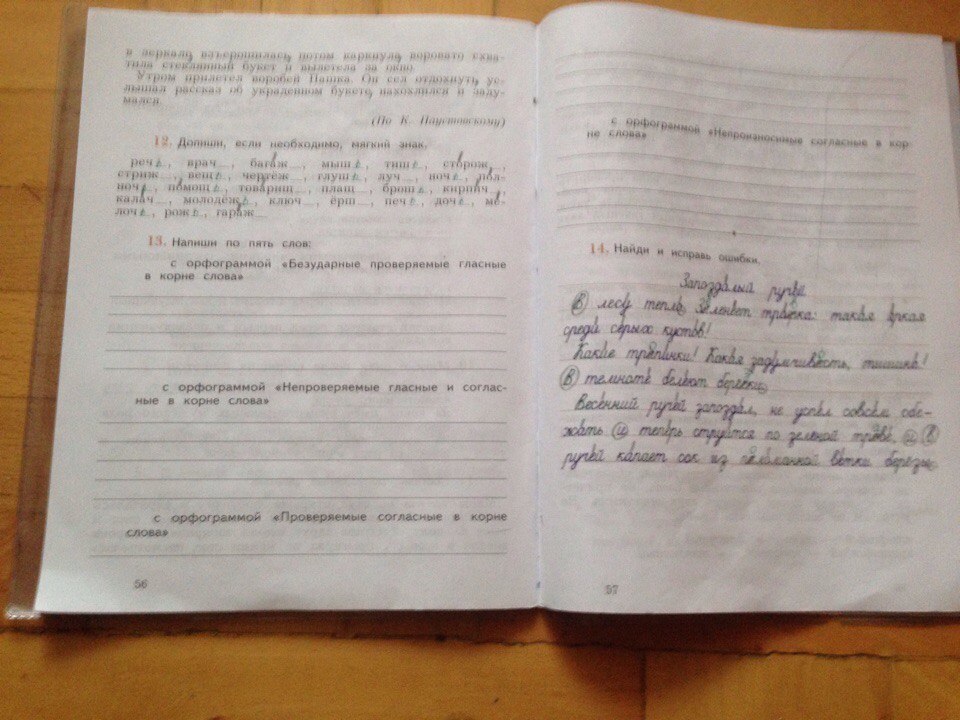 в зеркало, взъерошилась, потом каркнула, воровато схва-
тила стеклянный букет и вылетела за окно.
Утром прилетел воробей Пашка. Он сел отдохнуть, ус-
лышал рассказ об украденном букете, нахохлился и заду-
мался.
(По К. Паустовскому)
12. Допиши, если необходимо, мягкий знак.
речь, врач , багаж , мышь, тишь, сторож ,
стриж , вещь, чертёж , глушь, луч , ночь, пол-
ночь, помощь, товарищ , плащ , брошь, кирпич ,
калач , молодёжь, ключ , ёрш , печь, дочь, ме-
лочь, рожь, гараж
13. Напиши по пять слов:
с орфограммой «Безударные проверяемые гласные
в корне слова»
с орфограммой «Непроверяемые гласные и соглас-
ные в корне слова»
с орфограммой «Проверяемые согласные в корне
слова»
56
с орфограммой «Непроизносимые согласные в кор-
не слова»
14. Найди и исправь ошибки.
Запоздалый ручей
В лесу тепло. Зеленеет травка: такая яркая
среди серых кустов!
Какие тропинки! Какая задумчивость, тишина!
В темноте белеют берёзки.
Весенний ручей запоздал, не успел совсем сбе-
жать и теперь струится по зелёной траве, и в
ручей капает сок из сломанной ветки берёзы.
57